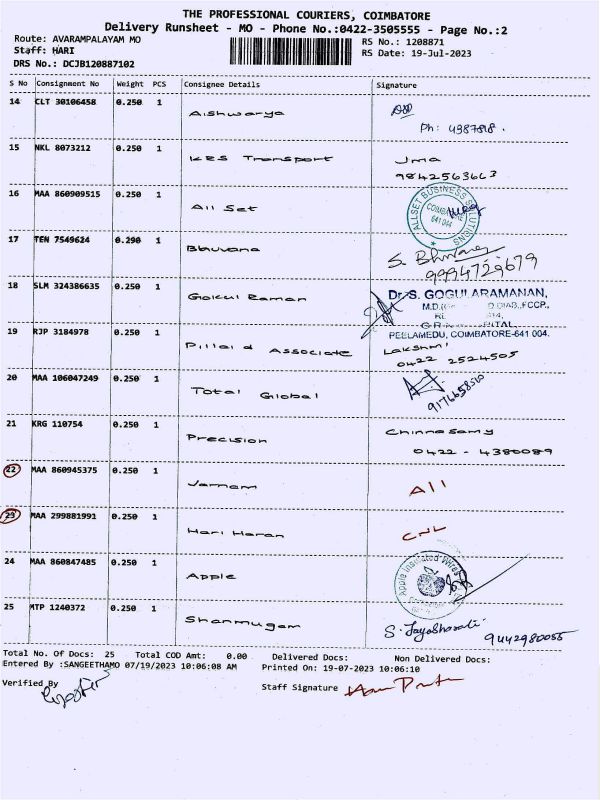 THE PROFESSIONAL COURIERS, COIMBATORE
Delivery Runsheet - MO - Phone No.:0422-3505555 - Page No.:2
Route: AVARAMPALAYAM MO RS No.: 1208871
Staff: HARI RS Date: 19-Jul-2023
DRS No.: DCJB120887102
S No Consignment No Weight PCS Consignee Details Signature
14 CLT 30106458 0.250 1 Aishwarya
Ph: 4387818.
15 NKL 8073212 0.250 1 KRS Transport Jma
9842563663
16 MAA 860909515 0.250 1 All Set
ALLSET BUSINESS SOLUTIONS
641 044
17 TEN 7549624 0.290 1 Bhuvana
9994729679
18 SLM 324386635 0.250 1 Gokul Raman
Dr. S. GOGULARAMANAN,
PEELAMEDU, COIMBATORE-641 004.
19 RJP 3184978 0.250 1 Pillai & Associate Lakshmi
0422 2524505
20 MAA 106047249 0.250 1 Total Global
21 KRG 110754 0.250 1 Precision Chinnasamy
0422 - 4380089
22 MAA 860945375 0.250 1 Varnam All
23 MAA 299881991 0.250 1 Hari Haran CNL
24 MAA 860847485 0.250 1 Apple
Apple Insulated Wires
25 MTP 1240372 0.250 1 Shanmugam
S. Jayabharathi 9442980055
Total No. Of Docs: 25 Total COD Amt: 0.00 Delivered Docs: Non Delivered Docs:
Entered By :SANGEETHAMO 07/19/2023 10:06:08 AM Printed On: 19-07-2023 10:06:10
Verified By Staff Signature